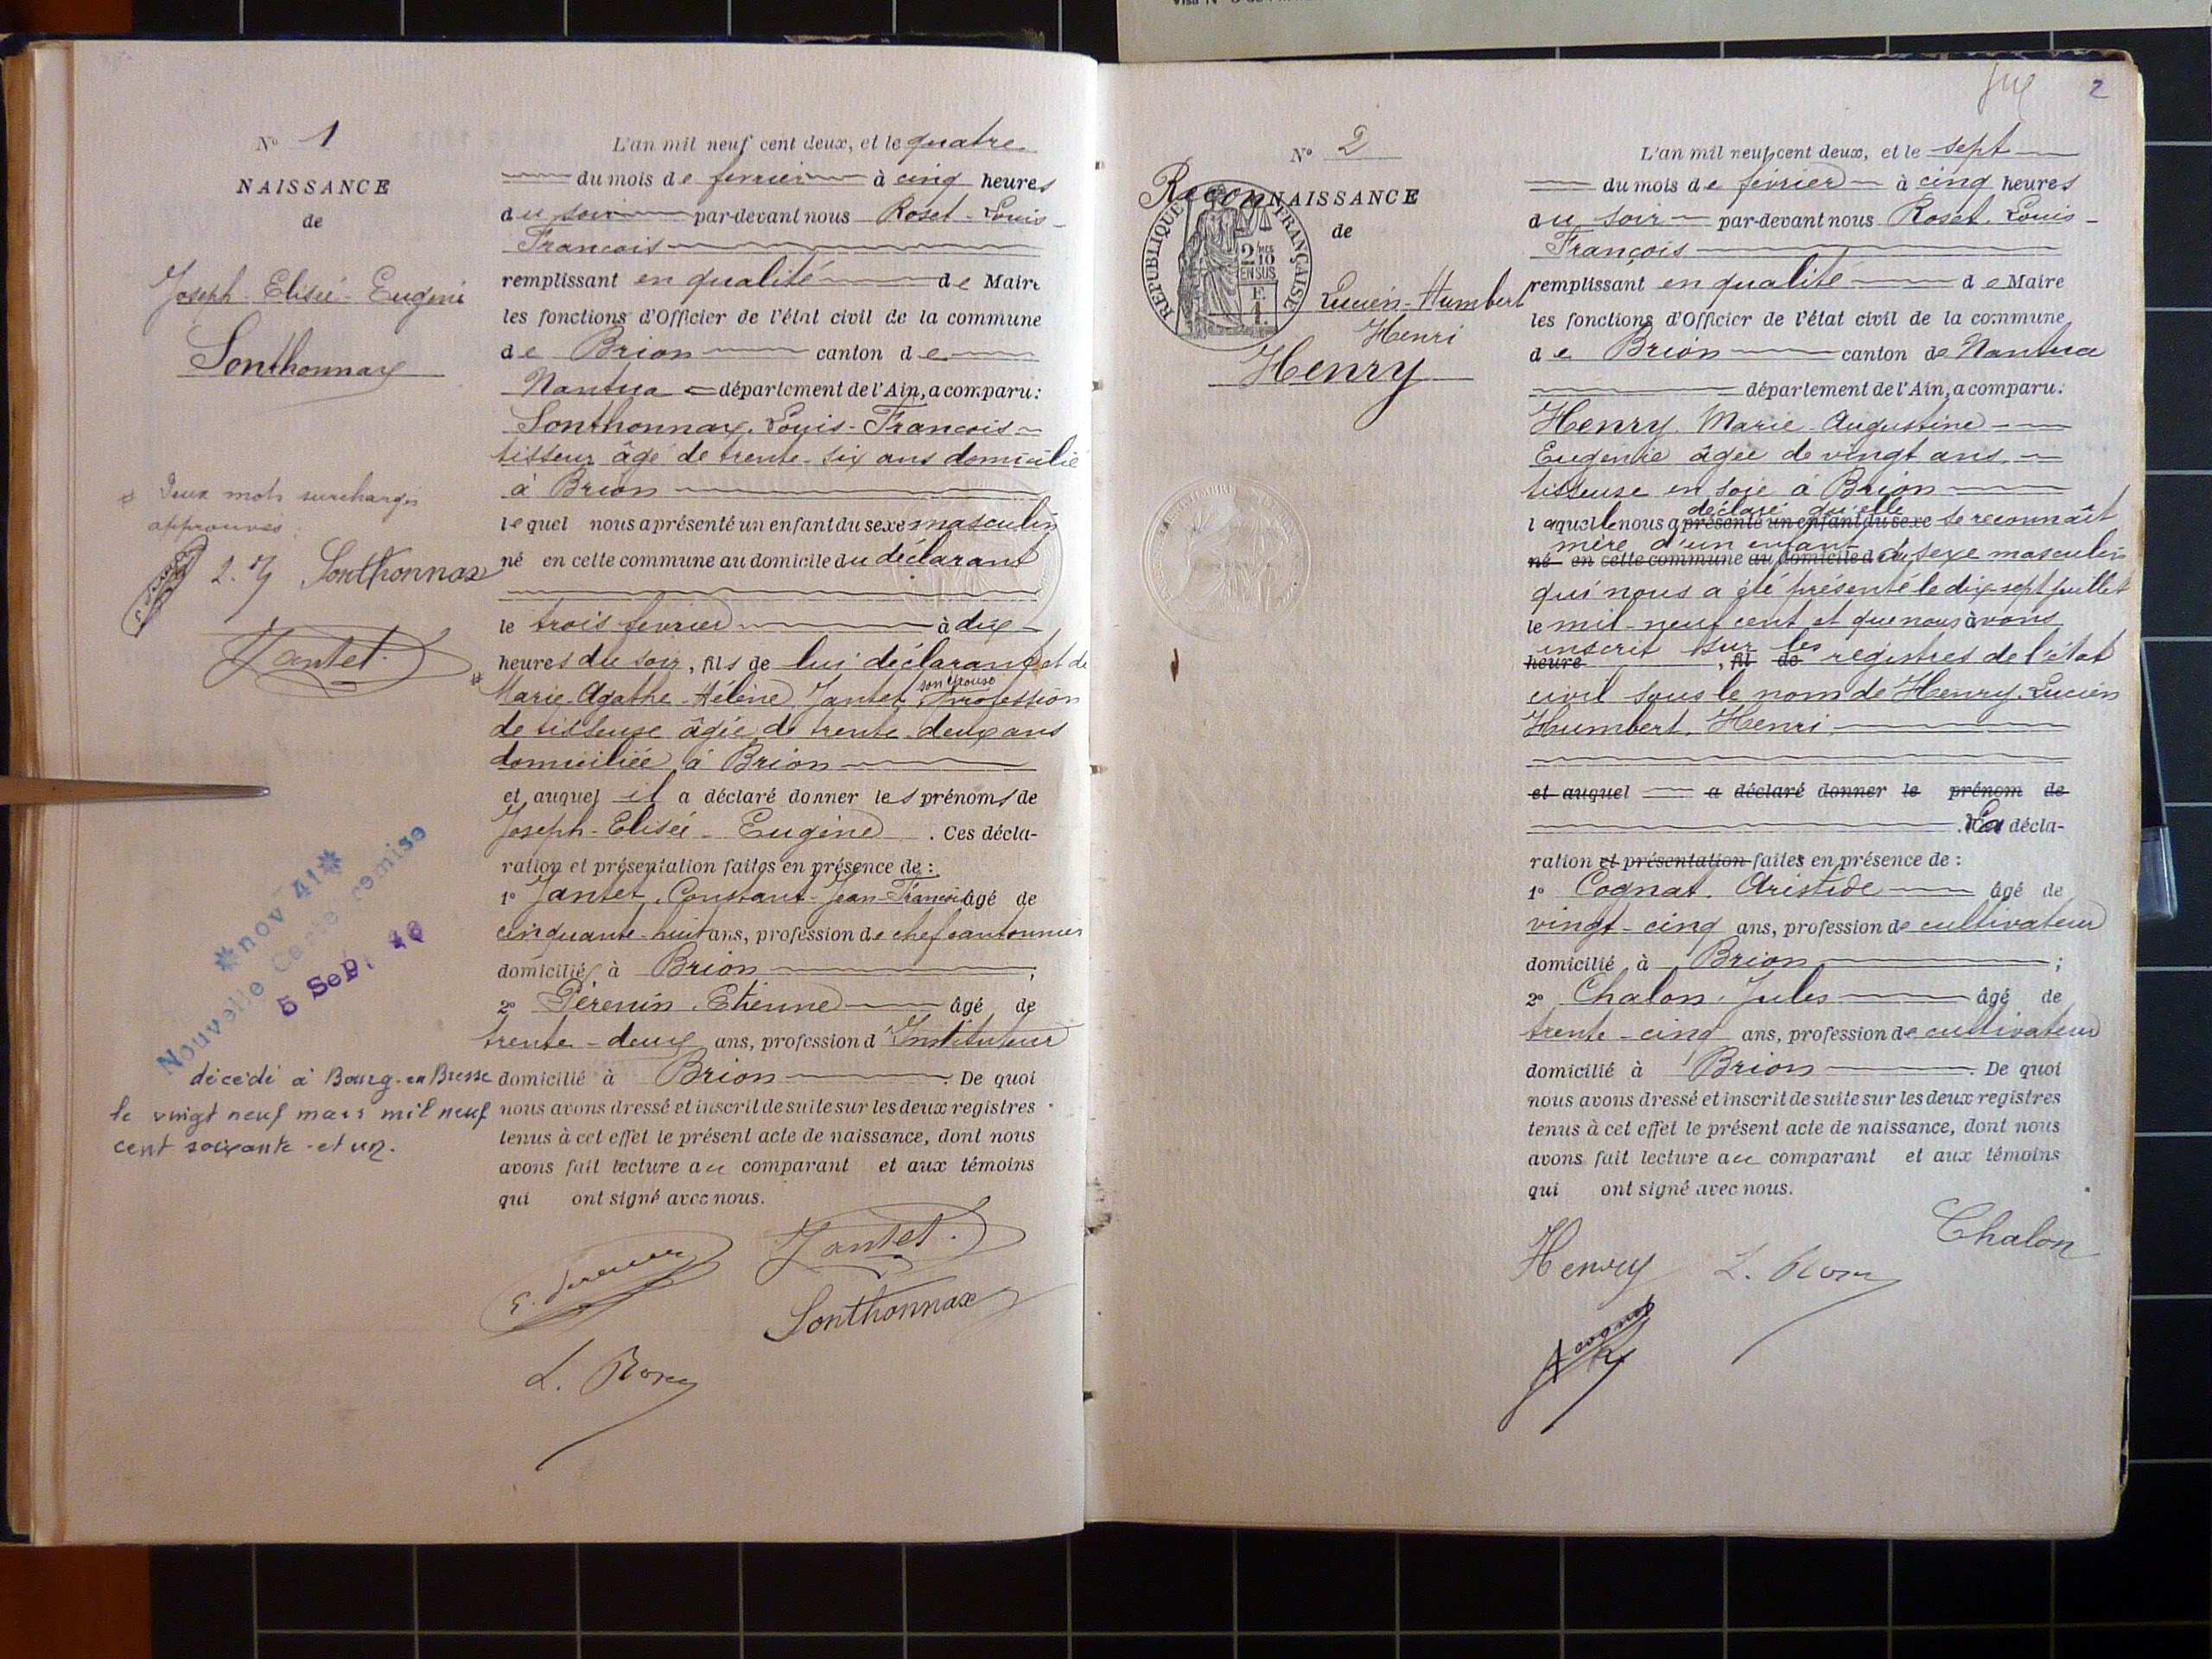 N° 1
NAISSANCE
de
Joseph-Elisée-Eugène
Sonthonnax
* Deux mots surchargés
approuvés.
Sonthonnax
Jantet.
*nov 41*
Nouvelle Carte remise
5 Sept 46
décédé à Bourg-en-Bresse
le vingt neuf mars mil neuf
cent soixante-et un.
L'an mil neuf cent deux, et le quatre
du mois de fevrier à cinq heures
du soir par-devant nous Roset-Louis-
Francois
remplissant en qualité de Maire
les fonctions d'Officier de l'état civil de la commune
de Brion canton de
Nantua département de l'Ain, a comparu:
Sonthonnax, Louis-Francois
tisseur âgé de trente-six ans domicilié
à Brion
lequel nous a présenté un enfant du sexe masculin
né en cette commune au domicile du déclarant
le trois fevrier à dix
heures du soir, fils de lui déclarant et de
* Marie-Agathe-Hélène Jantet, son épouse profession
de tisseuse âgée de trente-deux ans
domiciliée à Brion
et auquel il a déclaré donner les prénoms de
Joseph-Elisée-Eugène. Ces décla-
ration et présentation faites en présence de:
1° Jantet, Constant-Jean-Francois âgé de
cinquante-huit ans, profession de chef cantonnier
domicilié à Brion;
2° Pérenin, Etienne âgé de
trente-deux ans, profession d'Instituteur
domicilié à Brion. De quoi
nous avons dressé et inscrit de suite sur les deux registres
tenus à cet effet le présent acte de naissance, dont nous
avons fait lecture au comparant et aux témoins
qui ont signé avec nous.
Jantet.
Sonthonnax
Visa N°
2
N° 2
ReconNAISSANCE
de
REPUBLIQUE FRANÇAISE
2/10 EN SUS
Lucien-Humbert
Henri
Henry
L'an mil neuf cent deux, et le sept
du mois de février à cinq heures
du soir par-devant nous Roset-Louis-
François
remplissant en qualité de Maire
les fonctions d'Officier de l'état civil de la commune
de Brion canton de Nantua
département de l'Ain, a comparu:
Henry, Marie-Augustine
Eugénie âgée de vingt ans
tisseuse en soie à Brion
déclaré qu'elle
laquelle nous a présenté un enfant du sexe se reconnaît
mère d'un enfant
né en cette commune au domicile d du sexe masculin
qui nous a été présenté le dix-sept juillet
le mil-neuf cent et que nous avons
inscrit sur les
heure, fil de registres de l'état
civil sous le nom de Henry, Lucien
Humbert, Henri
et auquel a déclaré donner le prénom de
. La décla-
ration et présentation faites en présence de:
1° Cognat, Aristide âgé de
vingt-cinq ans, profession de cultivateur
domicilié à Brion;
2° Chalon, Jules âgé de
trente-cinq ans, profession de cultivateur
domicilié à Brion. De quoi
nous avons dressé et inscrit de suite sur les deux registres
tenus à cet effet le présent acte de naissance, dont nous
avons fait lecture au comparant et aux témoins
qui ont signé avec nous.
Chalon
Henry